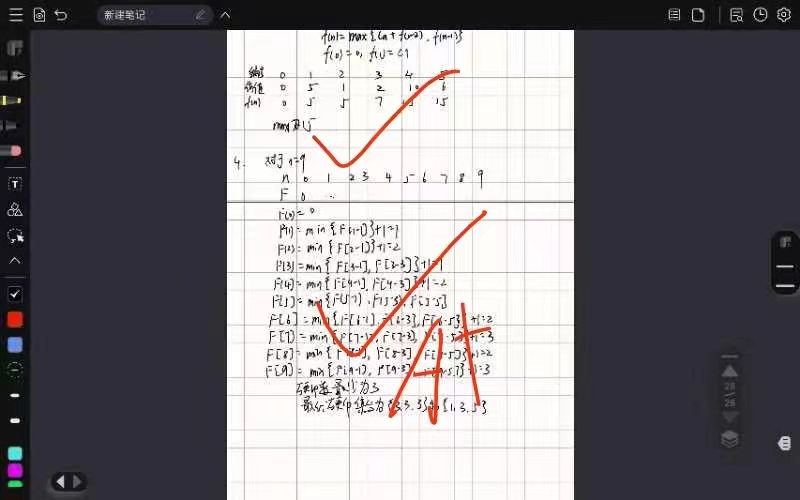 新建笔记
f(n)=max{Cn+f(n-2), f(n-1)}
f(0)=0, f(1)=C1
编号 0 1 2 3 4 5
价值 0 5 1 2 10 6
f(n) 0 5 5 7 15 15
max 为 15
4. 对于 n=9
n 0 1 2 3 4 5 6 7 8 9
F 0 ...
F(0)=0
F(1)=min{F[1-1]}+1=1
F(2)=min{F[2-1]}+1=2
F[3]=min{F[3-1], F[3-3]}+1=1
F[4]=min{F[4-1], F[4-3]}+1=2
F[5]=min{F(5-1), F(5-3), F[5-5]
F[6]=min{F[6-1], F[6-3], F[6-5]}+1=2
F[7]=min{F[7-1], F[7-3], F[7-5]}+1=3
F[8]=min{F[8-1], F[8-3], F[8-5]}+1=2
F[9]=min{F[9-1], F[9-3], F[9-5]}+1=3
硬币数量最少为3
最少硬币集合为{3,3,3}和{1,3,5}
A+
26
26